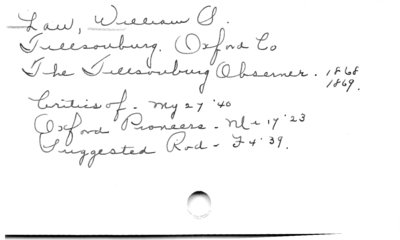 Law, William S.
Tillsonburg. Oxford Co
The Tillsonburg Observer. 1868
1869.
Critics of - My 27 '40
Oxford Pioneers - Nl - 17 '23
Suggested Rod - F 4 '39.